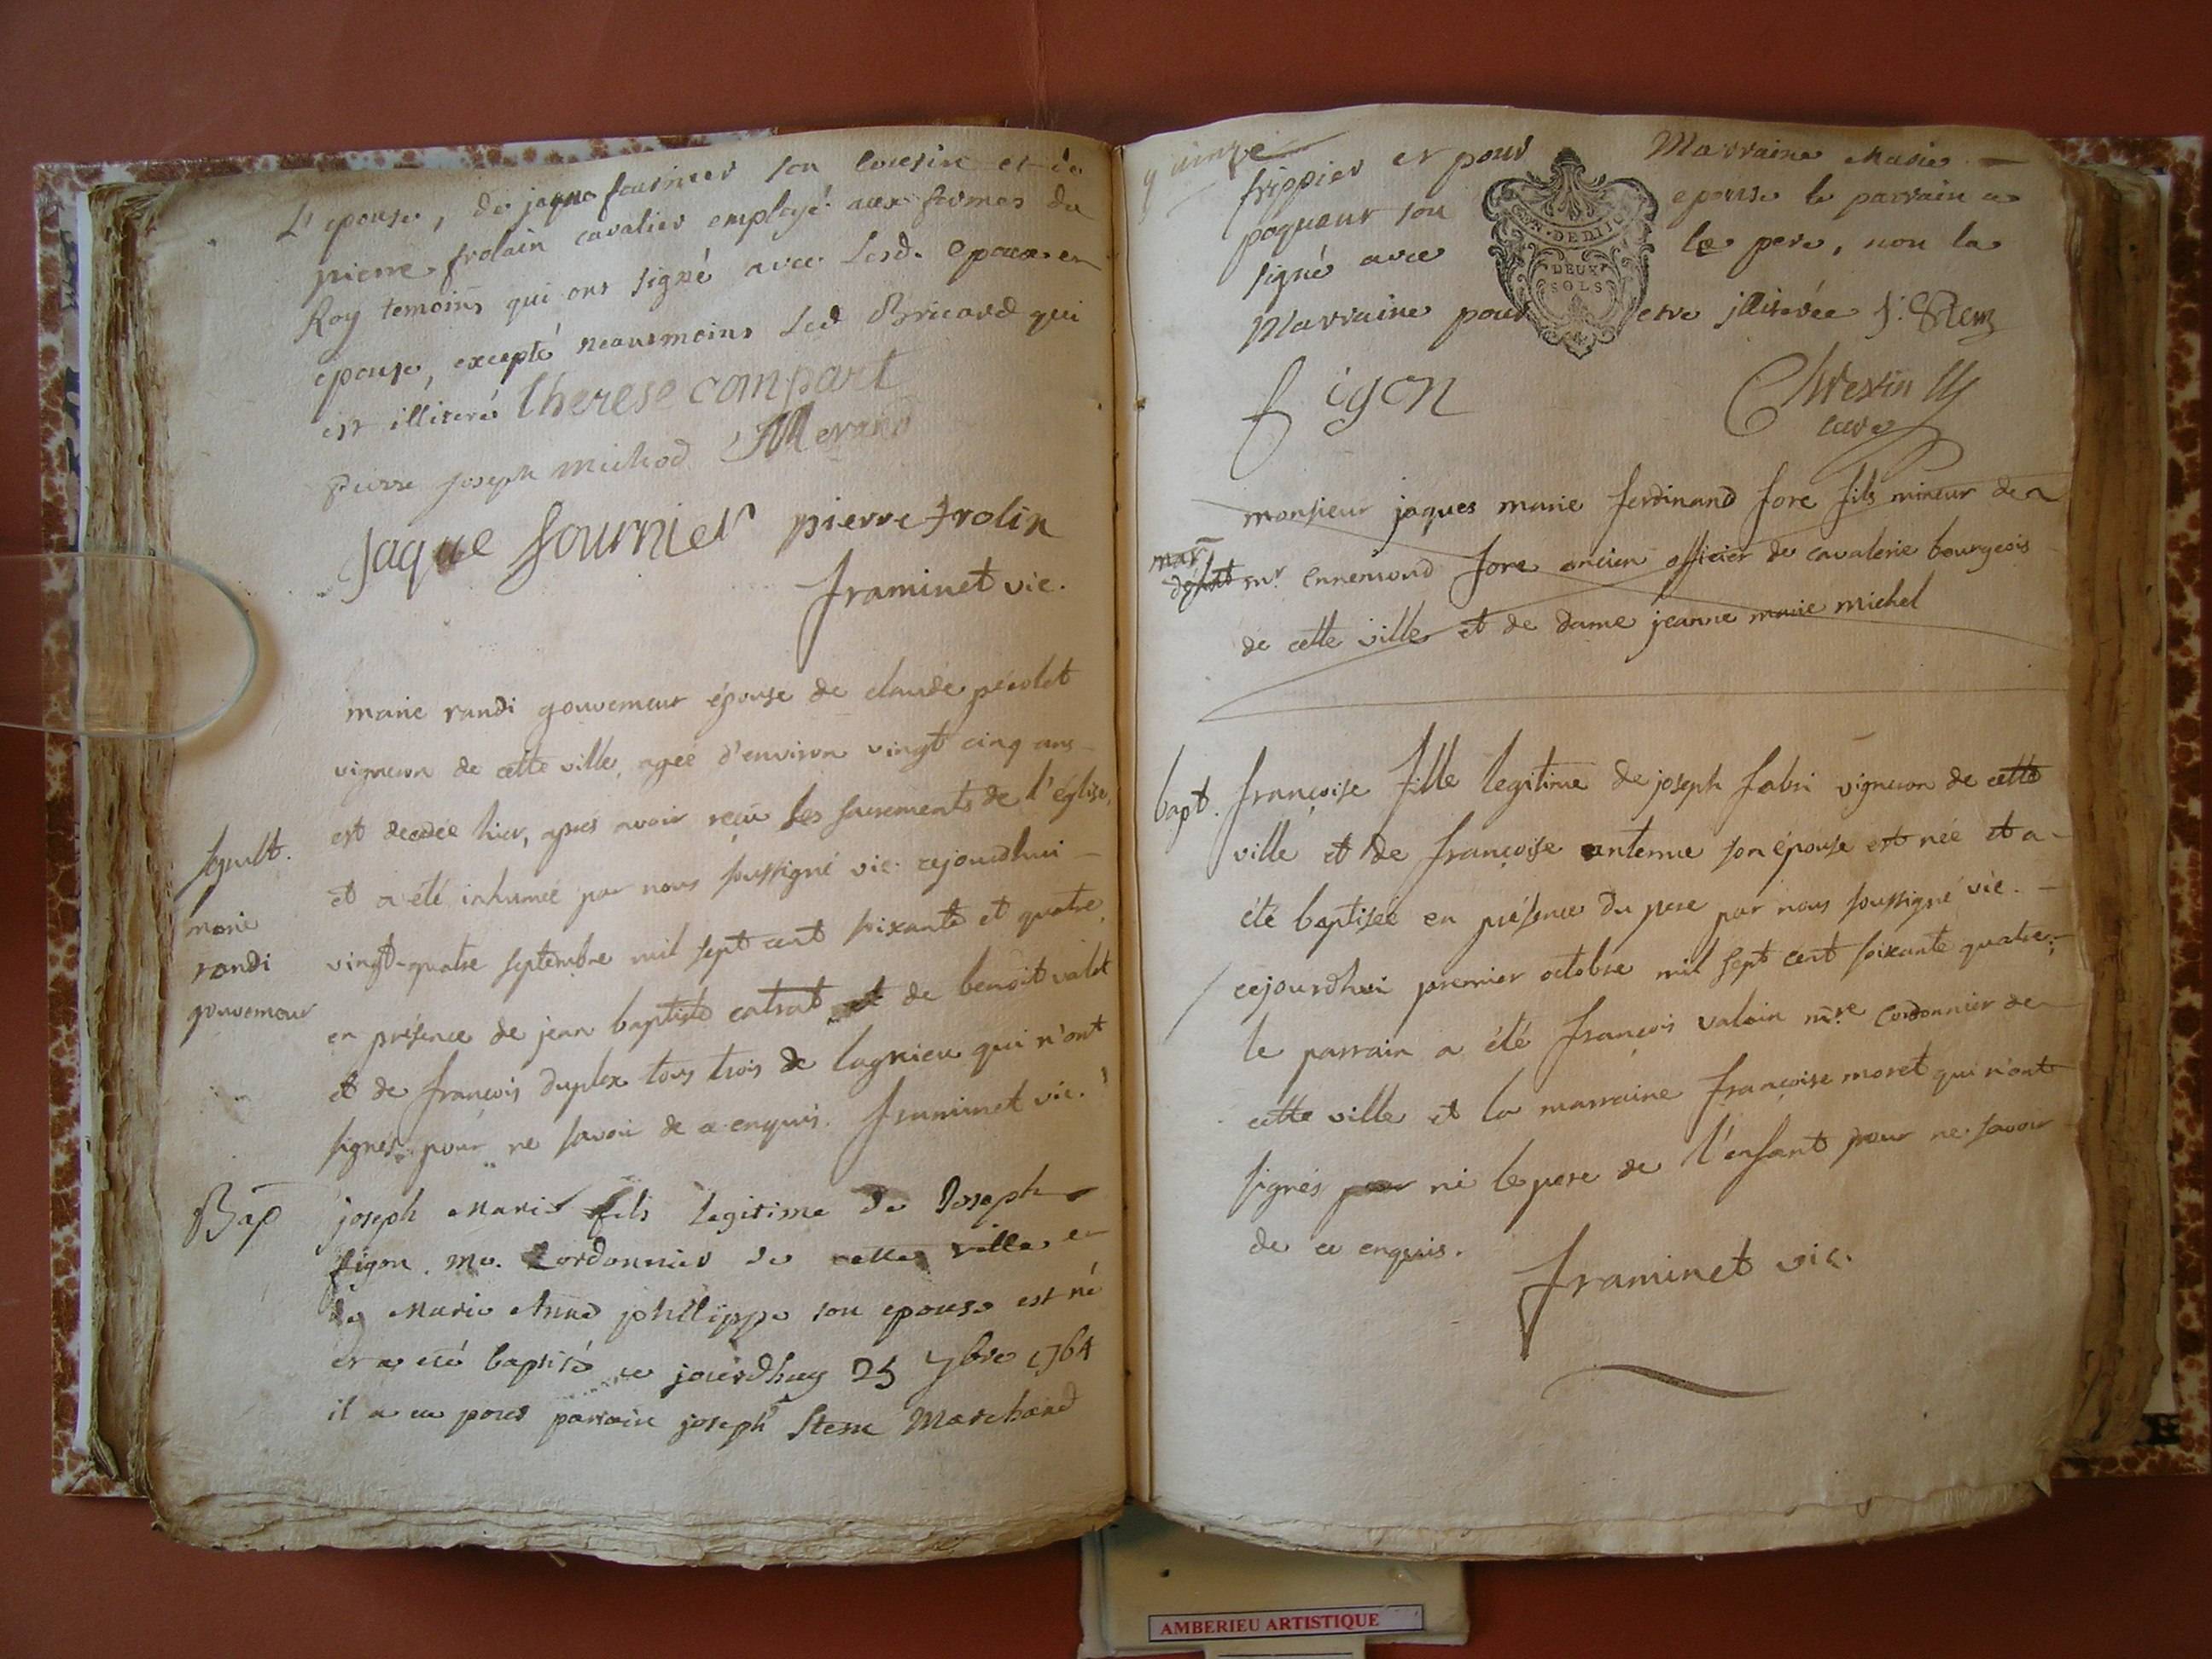 L'epouse, de jaque fournier son cousin et de
pierre frolain cavalier employé aux fermes du
Roy temoins qui ont signé avec Lesd. epoux et
epouse, excepté neansmoins Led Bricard qui
est illiteré therese compart
pierre joseph michod Merand
jaque fournier pierre frolin
framinet vic.
marie randi gouverneur épouse de claude pérolet
vigneron de cette ville, agée d'environ vingt cinq ans
est decedée hier, apres avoir reçu les sacrements de l'église,
et a été inhumée par nous soussigné vic. cejourdhui
vingt-quatre septembre mil sept cent soixante et quatre,
en présence de jean baptiste catrat et de benoit valet
et de françois duplex tous trois de lagnieu qui n'ont
signés pour ne savoir de ce enquis. framinet vic.
sepult.
marie
randi
gouverneur
Bap joseph Marie fils legitime de Joseph
figon me. Cordonnier de cette ville et
de Marie Anne philippe son epouse est né
et a eté baptisé ce jourdhuy 25 7bre 1764
il a eu pour parrain joseph Stem Marchand
frippier et pour Marraine Marie
son epouse le parrain a
signé avec le pere, non la
Marraine pour etre illiterée J. Stem
figon Chrestin
curé
GEN. DE DIJON
DEUX
SOLS
monsieur jaques marie ferdinand fore fils mineur de
mar. mr. Ennemond fore ancien officier de cavalerie bourgeois
de cette ville et de dame jeanne marie michel
bapt. françoise fille legitime de joseph fabri vigneron de cette
ville et de françoise antenne son épouse est née et a
été baptisée en présence du pere par nous soussigné vic.
cejourdhui premier octobre mil sept cent soixante quatre;
le parrain a été françois valain mre cordonnier de
cette ville et la marraine françoise moret qui n'ont
signés pour ni le pere de l'enfant pour ne savoir
de ce enquis.
framinet vic.
AMBERIEU ARTISTIQUE